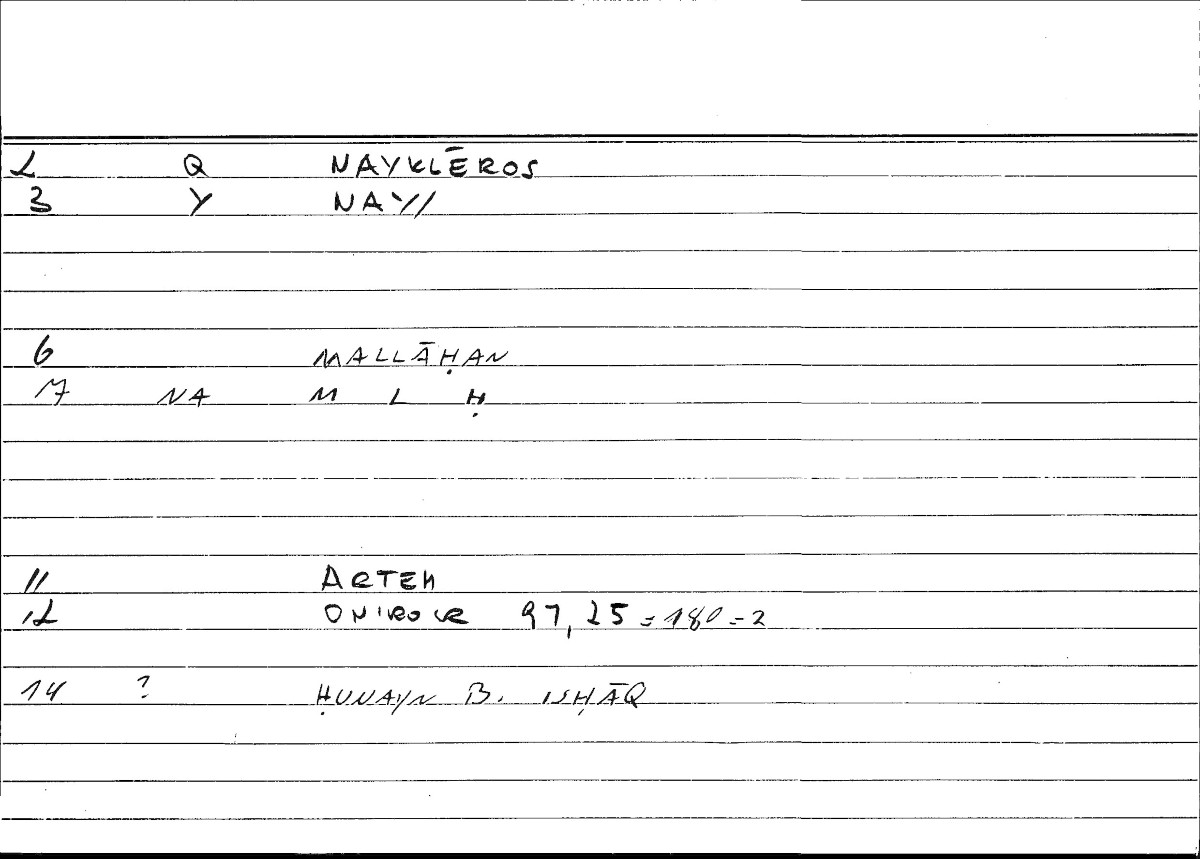 2 Q NAYKLĒROS
3 Y NAY//
6 MALLĀḤAN
7 NA M L Ḥ
11 ARTEM
12 ONIROCR 97,25=180=2
14 ? ḤUNAYN B. ISḤĀQ